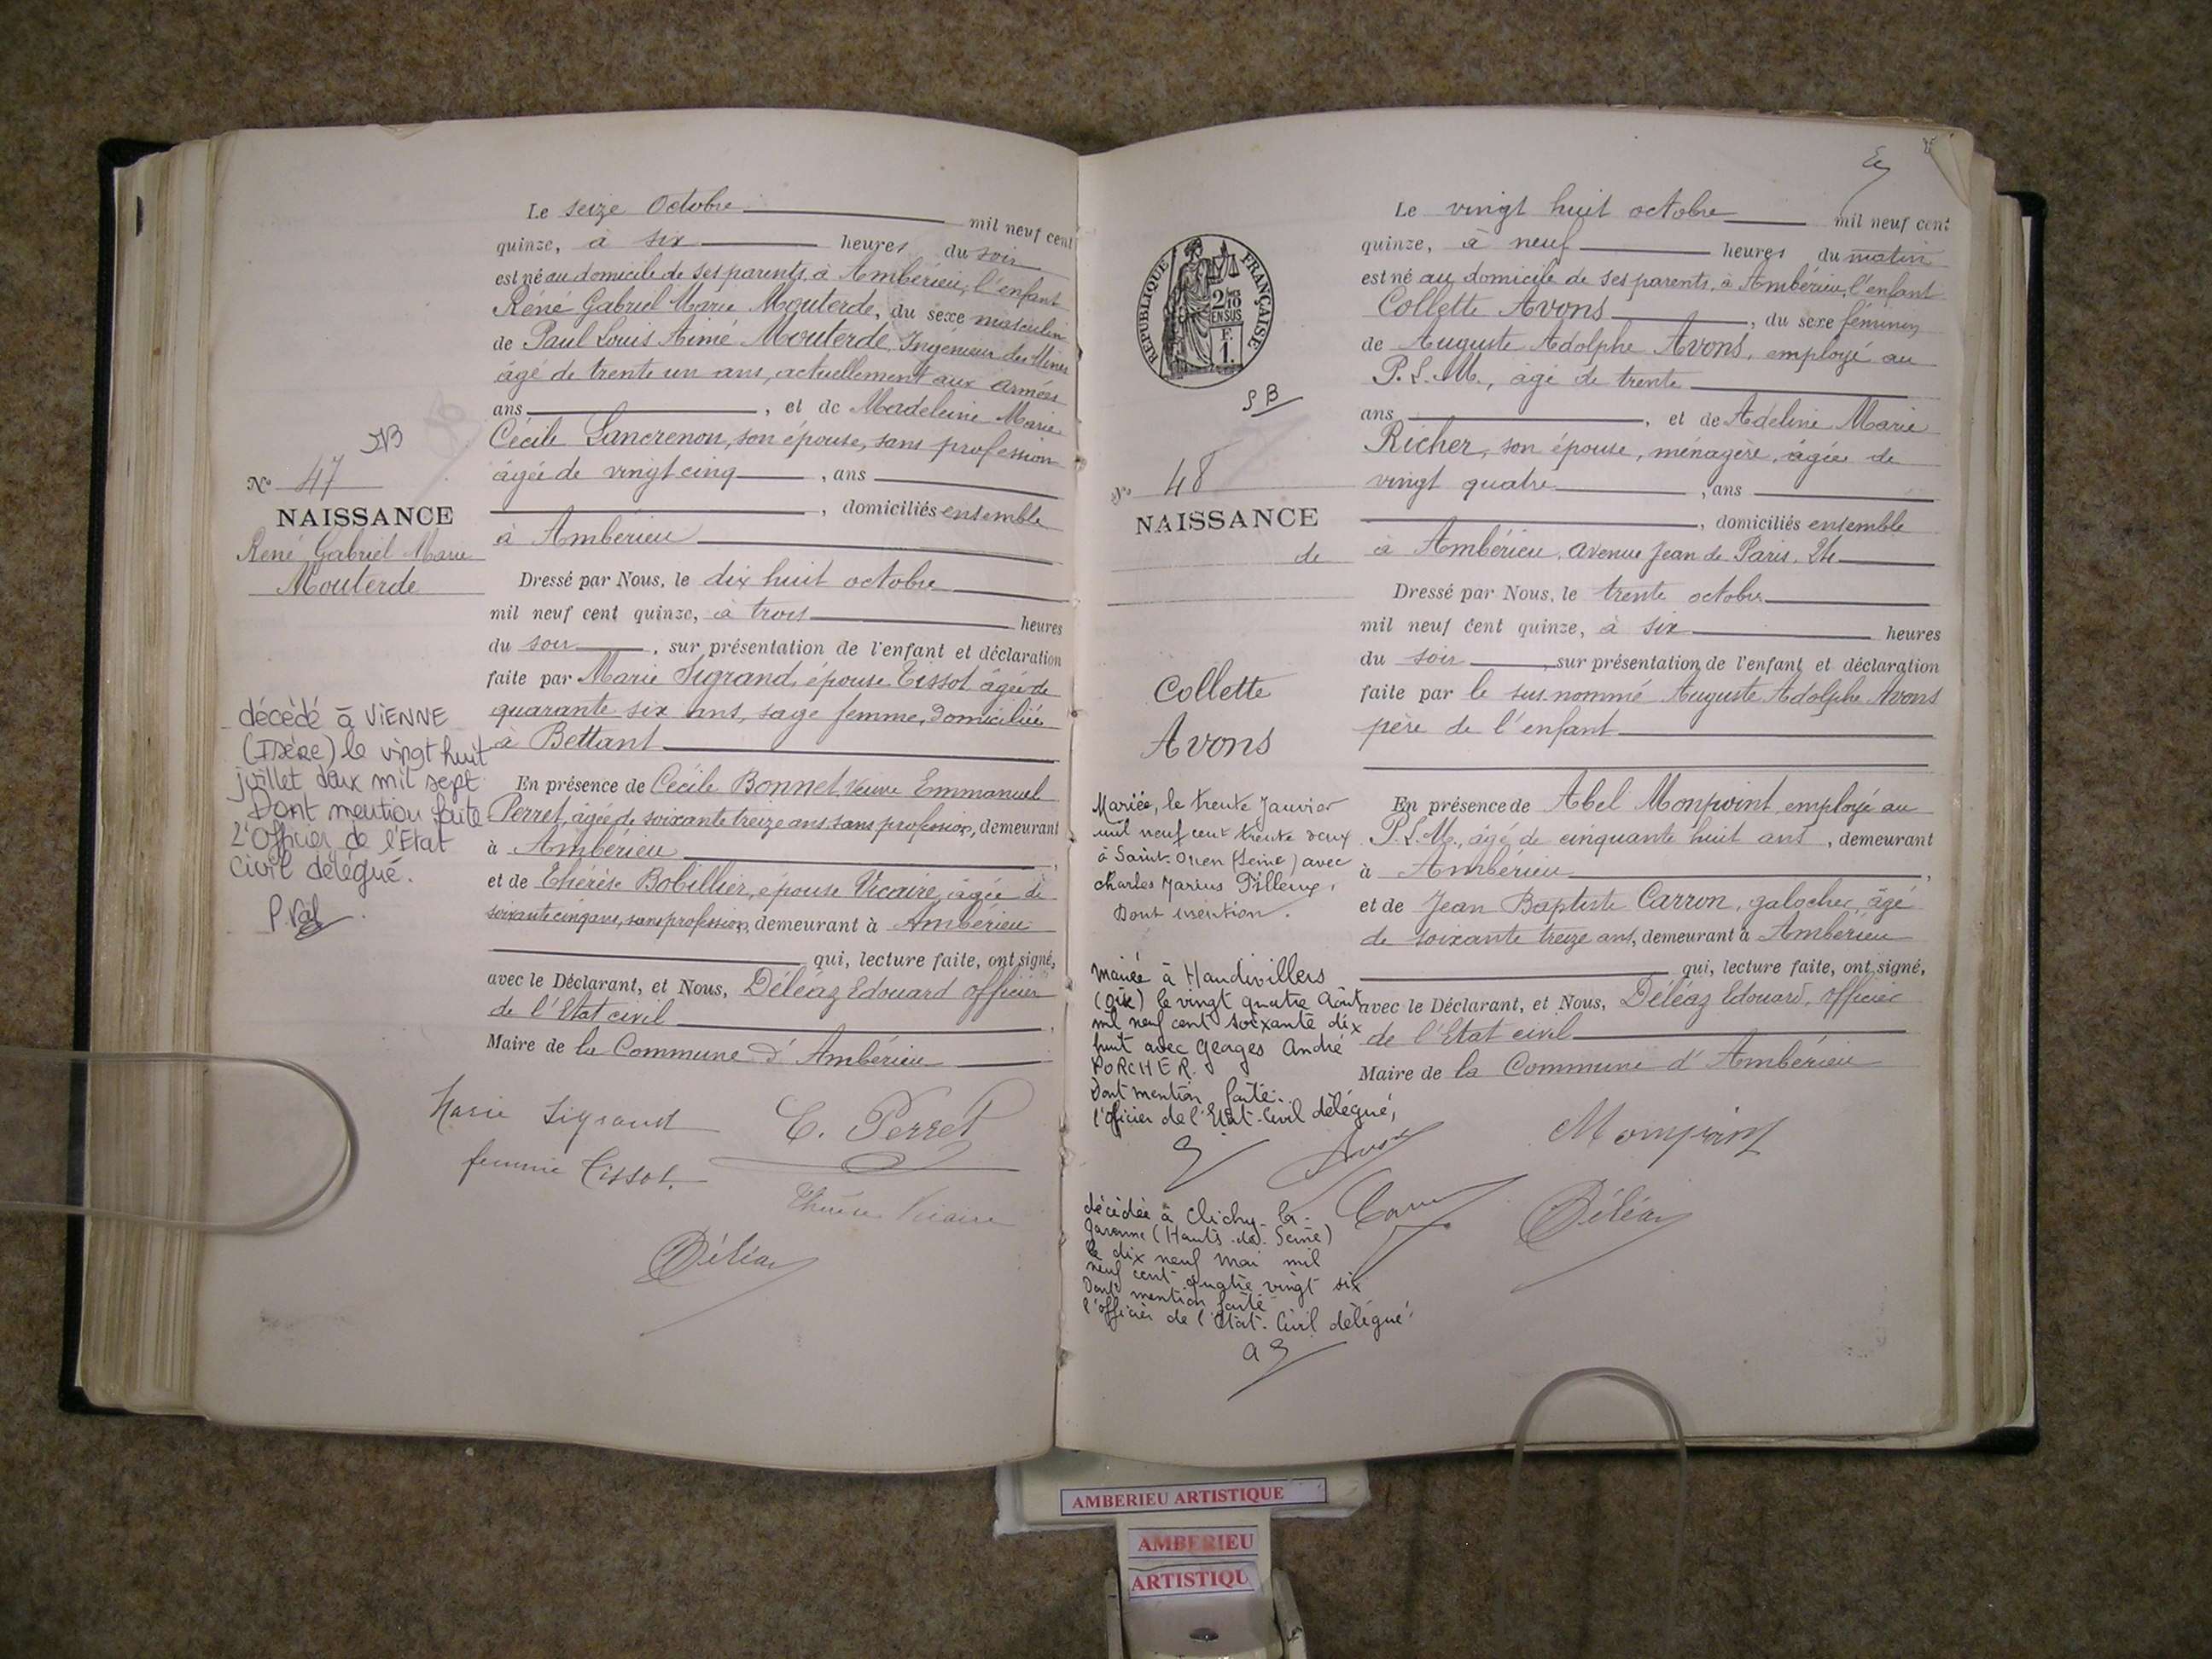 Le seize Octobre mil neuf cent
quinze, à six heures du soir
est né au domicile de ses parents, à Ambérieu, l'enfant
Réné Gabriel Marie Mouterde, du sexe masculin
de Paul Louis Aimé Mouterde, Ingénieur des Mines
âgé de trente un ans, actuellement aux armées
ans, et de Madeleine Marie
Cécile Lancrenon, son épouse, sans profession
âgée de vingt cinq, ans
domiciliés ensemble
à Ambérieu
Dressé par Nous, le dix huit octobre
mil neuf cent quinze, à trois heures
du soir, sur présentation de l'enfant et déclaration
faite par Marie Sigrand, épouse Tissot, âgée de
quarante six ans, sage femme, domiciliée
à Bettant
En présence de Cécile Bonnet, Veuve Emmanuel
Perret, âgée de soixante treize ans, sans profession, demeurant
à Ambérieu,
et de Thérèse Bobillier, épouse Vicaire, âgée de
soixante cinq ans, sans profession, demeurant à Ambérieu
qui, lecture faite, ont signé,
avec le Déclarant, et Nous, Déléaz Edouard officier
de l'Etat civil,
Maire de la Commune d'Ambérieu
Marie Sigrand
femme Tissot.
C. Perret
Thérèse Vicaire
Déléaz
N° 47
NAISSANCE
René Gabriel Marie
Mouterde
décédé à VIENNE
(ISÈRE) le vingt huit
juillet deux mil sept
Dont mention faite
L'Officier de l'Etat
Civil délégué.
Le vingt huit octobre mil neuf cent
quinze, à neuf heures du matin
est né au domicile de ses parents, à Ambérieu, l'enfant
Collette Avons, du sexe féminin
de Auguste Adolphe Avons, employé au
P.L.M., âgé de trente
ans, et de Adeline Marie
Richer, son épouse, ménagère, âgée de
vingt quatre, ans
domiciliés ensemble
à Ambérieu, avenue Jean de Paris, 24
Dressé par Nous, le trente octobre
mil neuf cent quinze, à six heures
du soir, sur présentation de l'enfant et déclaration
faite par le sus nommé Auguste Adolphe Avons
père de l'enfant
En présence de Abel Monpoint, employé au
P.L.M., âgé de cinquante huit ans, demeurant
à Ambérieu,
et de Jean Baptiste Carron, galocher, âgé
de soixante treize ans, demeurant à Ambérieu
qui, lecture faite, ont signé,
avec le Déclarant, et Nous, Déléaz Edouard, officier
de l'Etat civil
Maire de la Commune d'Ambérieu
Monpoint
Déléaz
RÉPUBLIQUE FRANÇAISE
2/10
EN SUS
F.
1.
SB
N° 48
NAISSANCE
de
Collette
Avons
Mariée, le trente Janvier
mil neuf cent trente deux
à Saint-Ouen (Seine) avec
Charles Marius Pilleux,
Dont mention.
Mariée à Haudivillers
(Oise) le vingt quatre Août
mil neuf cent soixante dix
huit avec Georges André
PORCHER.
Dont mention faite.
l'Officier de l'Etat-Civil délégué,
décédée à Clichy-la-
Garenne (Hauts-de-Seine)
le dix neuf mai mil
neuf cent quatre vingt six
Dont mention faite
l'officier de l'Etat-Civil délégué.
AMBERIEU ARTISTIQUE
AMBERIEU
ARTISTIQU